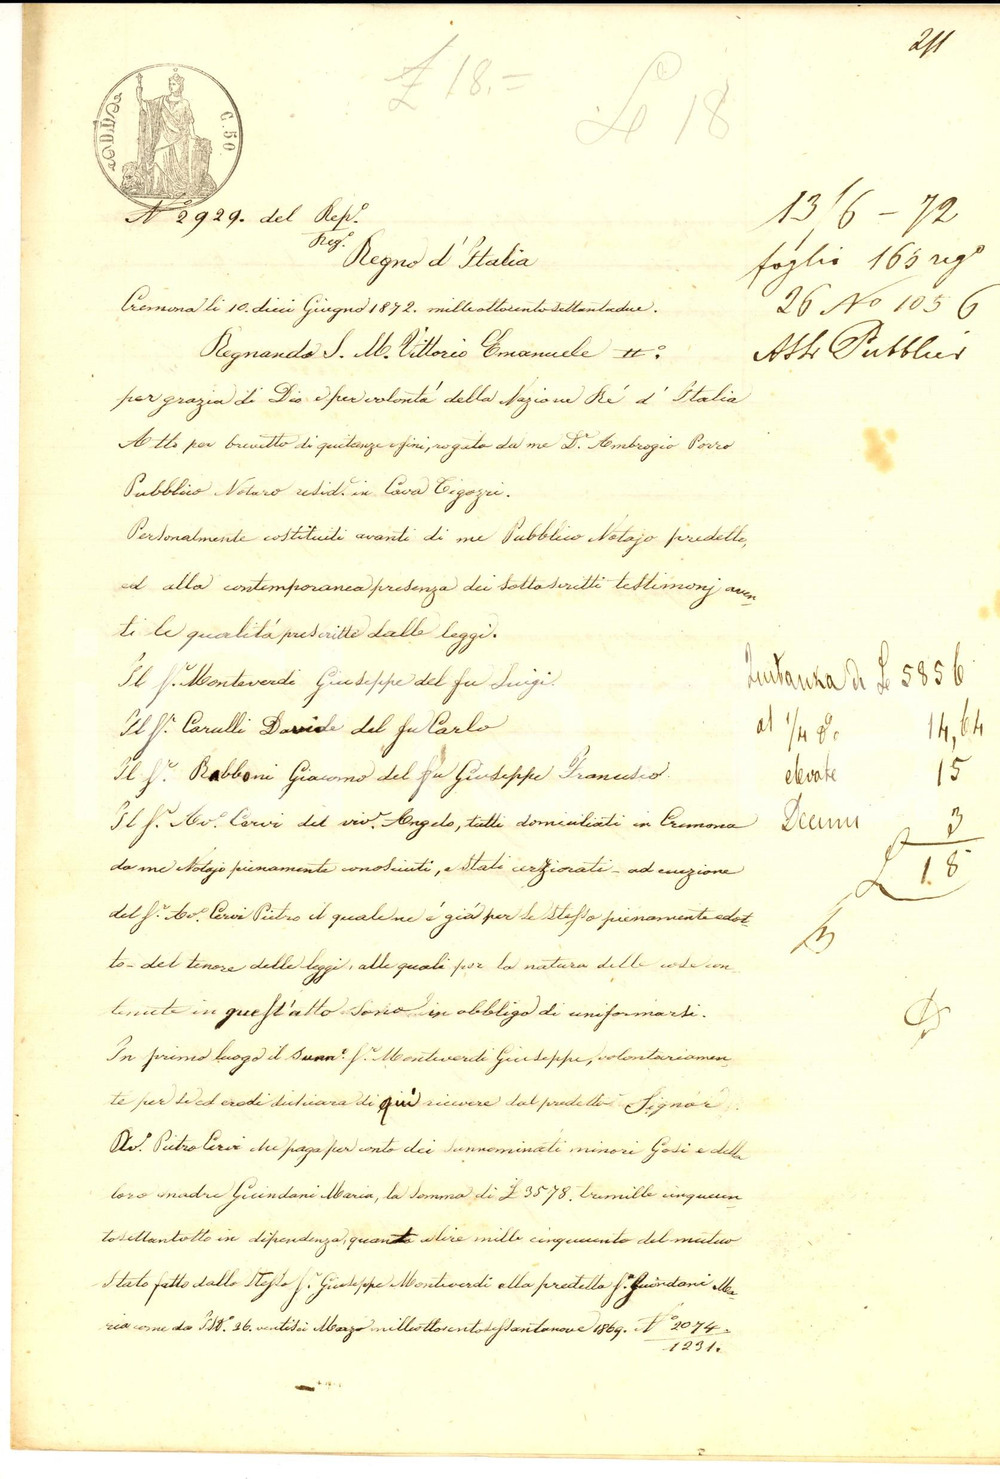 211
£ 18.=
£ 18
C. 50
Nº 2929. del Repº.
Regº.
Regno d'Italia
Cremona li 10. dieci Giugno 1872. milleottocentosettantadue.
Regnando S. M. Vittorio Emanuele IIº.
per grazia di Dio e per volontà della Nazione Ré d'Italia
Atto per brevetto di quitanze e fini, rogato da me Dr. Ambrogio Porro
Pubblico Notaro resid. in Cava Tigozzi.
Personalmente costituiti avanti di me Pubblico Notajo predetto,
ed alla contemporanea presenza dei sottoscritti testimonj aven-
ti le qualità prescritte dalle leggi.
Il Sr. Monteverdi Giuseppe del fu Luigi
Il Sr. Carulli Davide del fu Carlo
Il Sr. Rabboni Giacomo del fu Giuseppe Francesco
Il Sr. Avo. Cervi del vivte. Angelo, tutti domiciliati in Cremona
da me Notajo pienamente conosciuti, e stati cerziorati - ad eccezione
del Sr. Avo. Cervi Pietro il quale ne é già per se stesso pienamente edot-
to - del tenore delle leggi, alle quali per la natura delle cose con-
tenute in quest'atto sono in obbligo di uniformarsi.
In primo luogo il sunno. Sr. Monteverdi Giuseppe, volontariamen-
te per se ed eredi dichiara di quì ricevere dal predetto Signor
Avo. Pietro Cervi che paga per conto dei sunnominati minori Gosi e della
loro madre Guindani Maria, la somma di £ 3578. tremille cinquecen-
tosettantotto in dipendenza, quanto a lire mille cinquecento del mutuo
stato fatto dallo stesso Sr. Giuseppe Monteverdi alla predetta Sra. Guindani Ma-
ria come da Istr. 26. ventisei Marzo milleottocentosessantanove 1869. Nº 2074.
1231.
13/6 - 72
foglio 165 regº
26 Nº 1056
Atti Pubblici
Quitanza di £ 5856
al 1/4 %
14,64
elevate 15
Decimi 3
£ 18